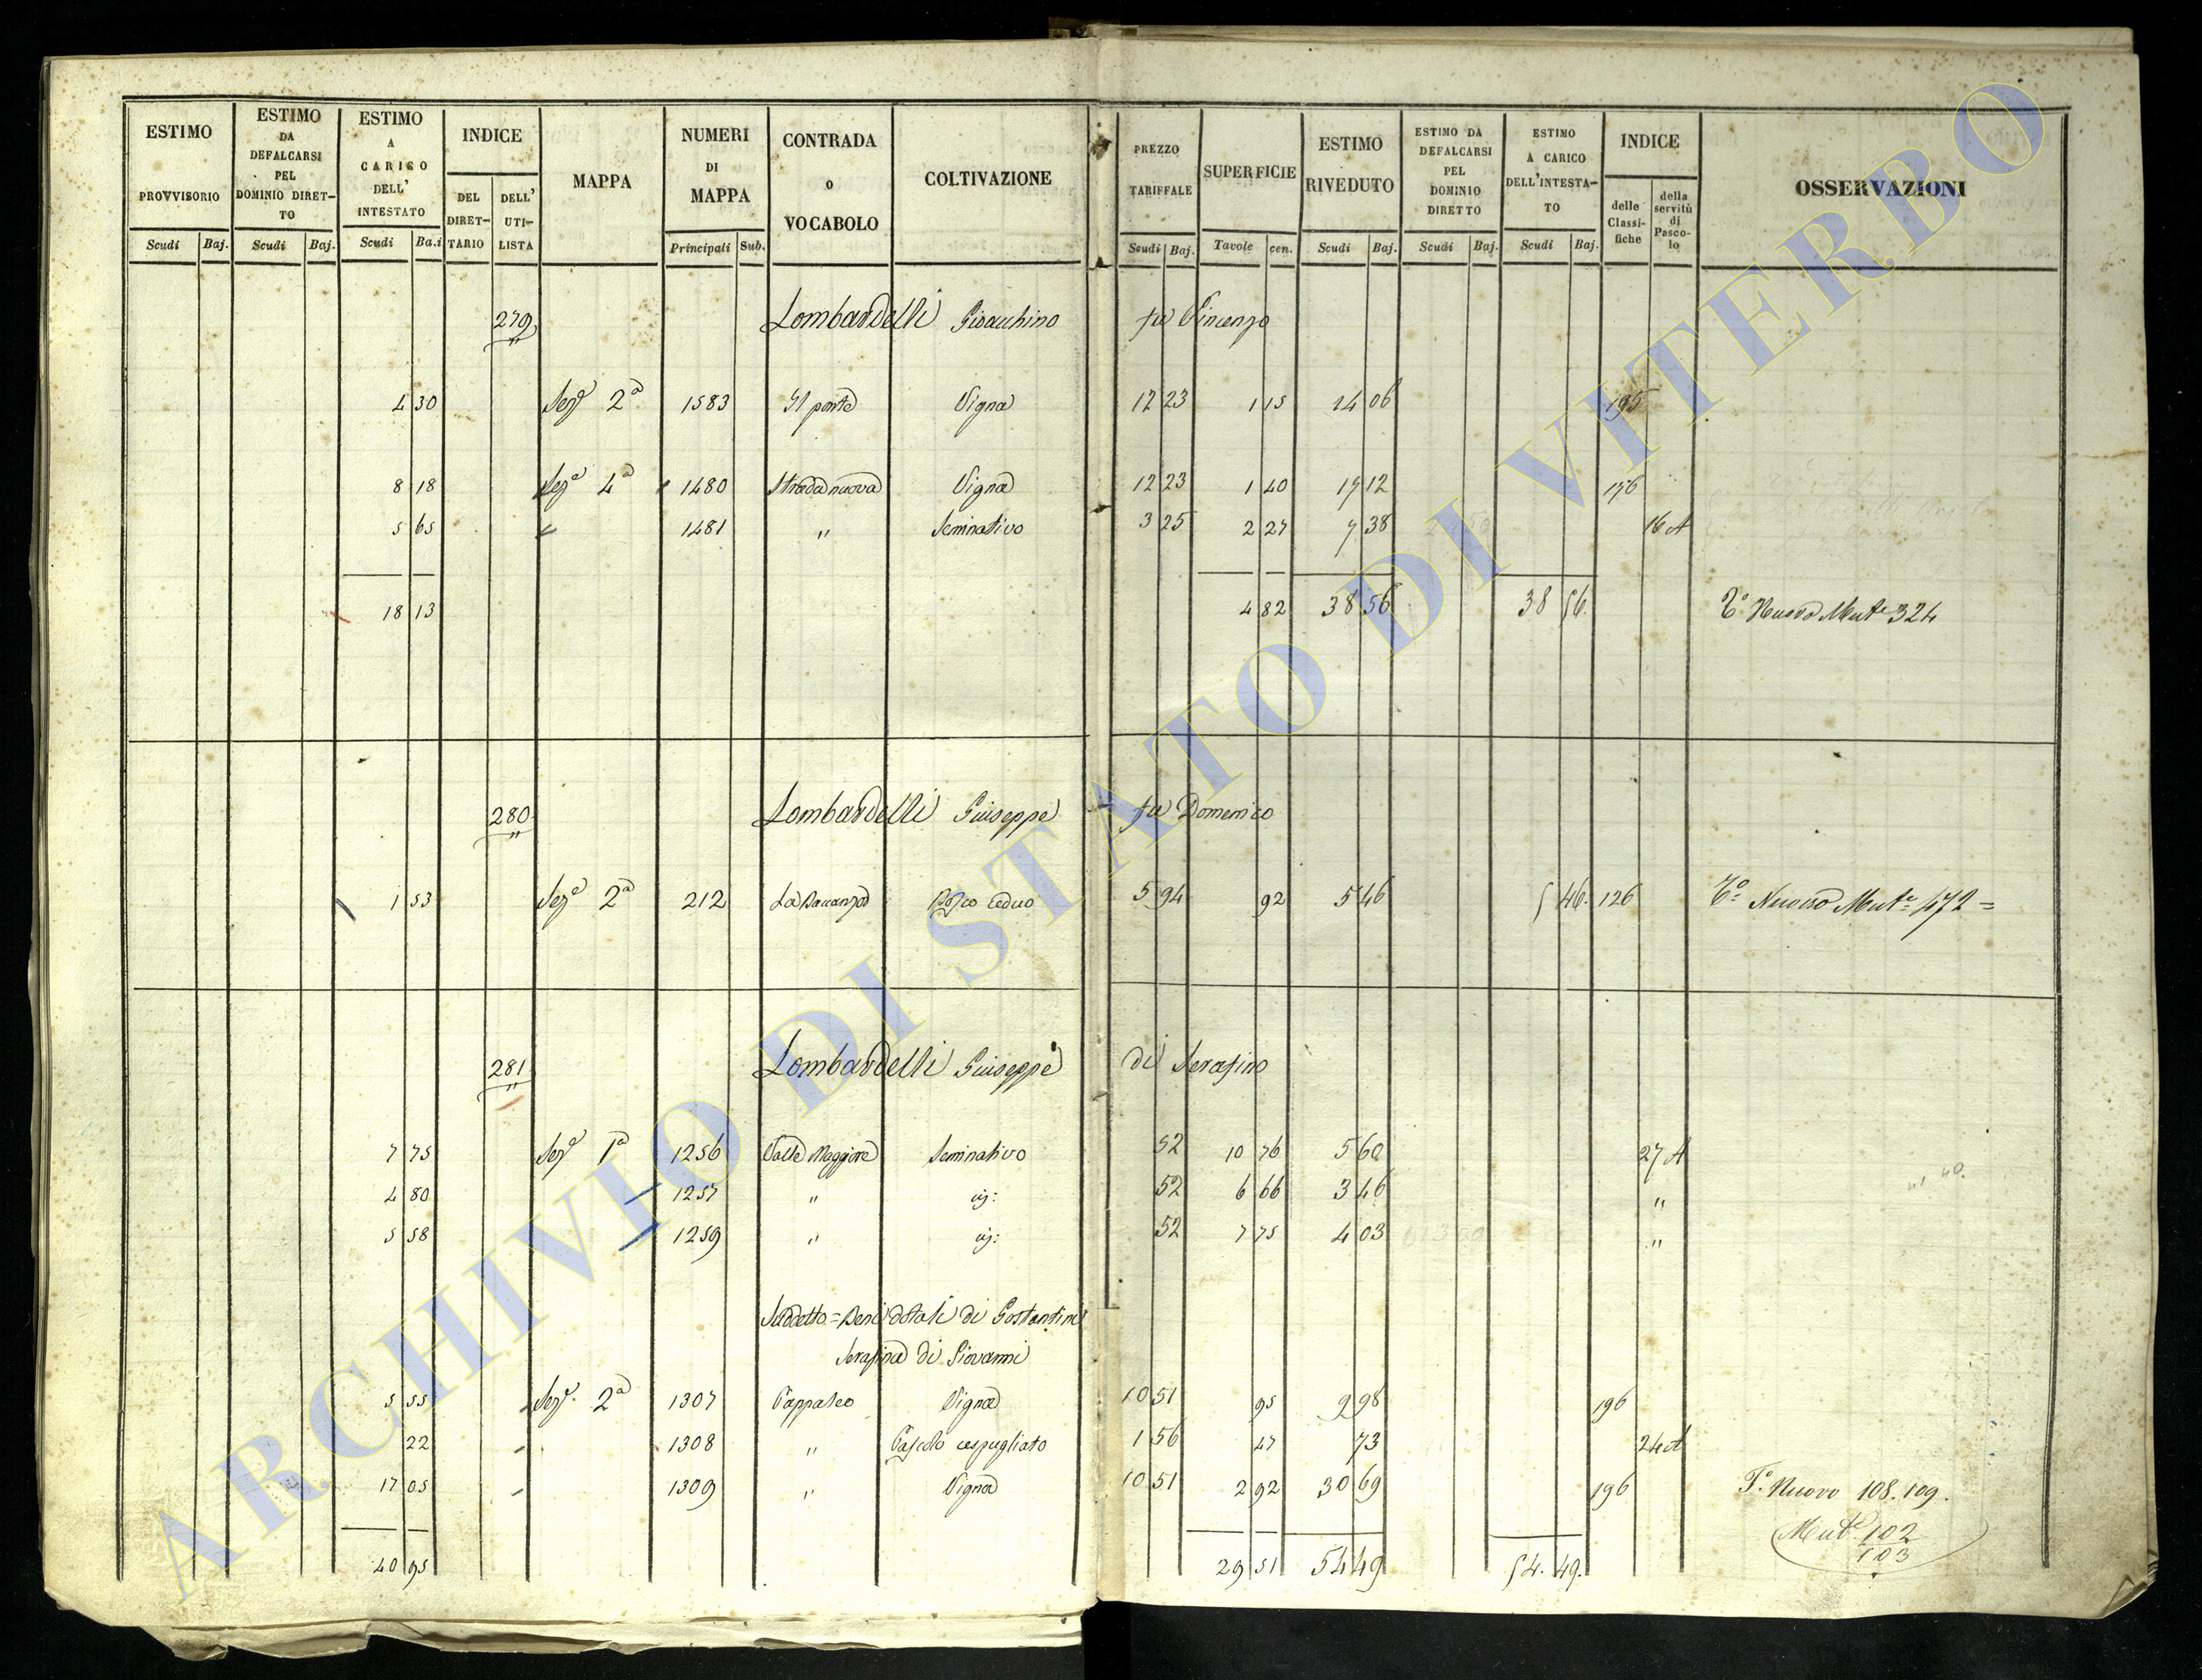 ESTIMO PROVVISORIO | ESTIMO DA DEFALCARSI PEL DOMINIO DIRET-TO | ESTIMO A CARICO DELL' INTESTATO | INDICE DEL DIRET-TARIO | DELL' UTI-LISTA | MAPPA | NUMERI DI MAPPA | CONTRADA O VOCABOLO | COLTIVAZIONE | PREZZO TARIFFALE | SUPERFICIE | ESTIMO RIVEDUTO | ESTIMO DA DEFALCARSI PEL DOMINIO DIRETTO | ESTIMO A CARICO DELL'INTESTA-TO | INDICE delle Classi-fiche | della servitù di Pasco-lo | OSSERVAZIONI
Scudi Baj. Scudi Baj. Scudi Ba.i Principali Sub. Scudi Baj. Tavole cen. Scudi Baj. Scudi Baj. Scudi Baj.
279 Lombardelli Gioacchino fu Vincenzo
4 30 Sez.e 2a 1583 Il ponte Vigna 12 23 1 15 14 06 195
8 18 Seze 4a 1480 Strada nuova Vigna 12 23 1 40 17 12 196
5 65 " 1481 " Seminativo 3 25 2 27 7 38 16 A
18 13 4 82 38 56 38 56. To Nuovo Mute 324
280 Lombardelli Giuseppe fu Domenico
1 53 Seze 2a 212 Bosco ceduo 5 94 92 5 46 5 46. 126 To Nuovo Mute 172 =
281 Lombardelli Giuseppe di Serafino
7 75 Seze 1a 1256 Valle Maggiore Seminativo 52 10 76 5 60 27 A
4 80 1257 " 52 6 66 3 46 "
5 58 1259 " 52 7 75 4 03 "
Suddetto = Beni dotali di Costantini
Serafina di Giovanni
5 55 Seze 2a 1307 Vigna 10 51 95 9 98 196
22 1308 " Pascolo cespugliato 1 56 47 73 24 A
17 05 1309 " Vigna 10 51 2 92 30 69 196 To Nuovo 108. 109.
Mute 102
103
40 95 29 51 54 49 54. 49.
ARCHIVIO DI STATO DI VITERBO